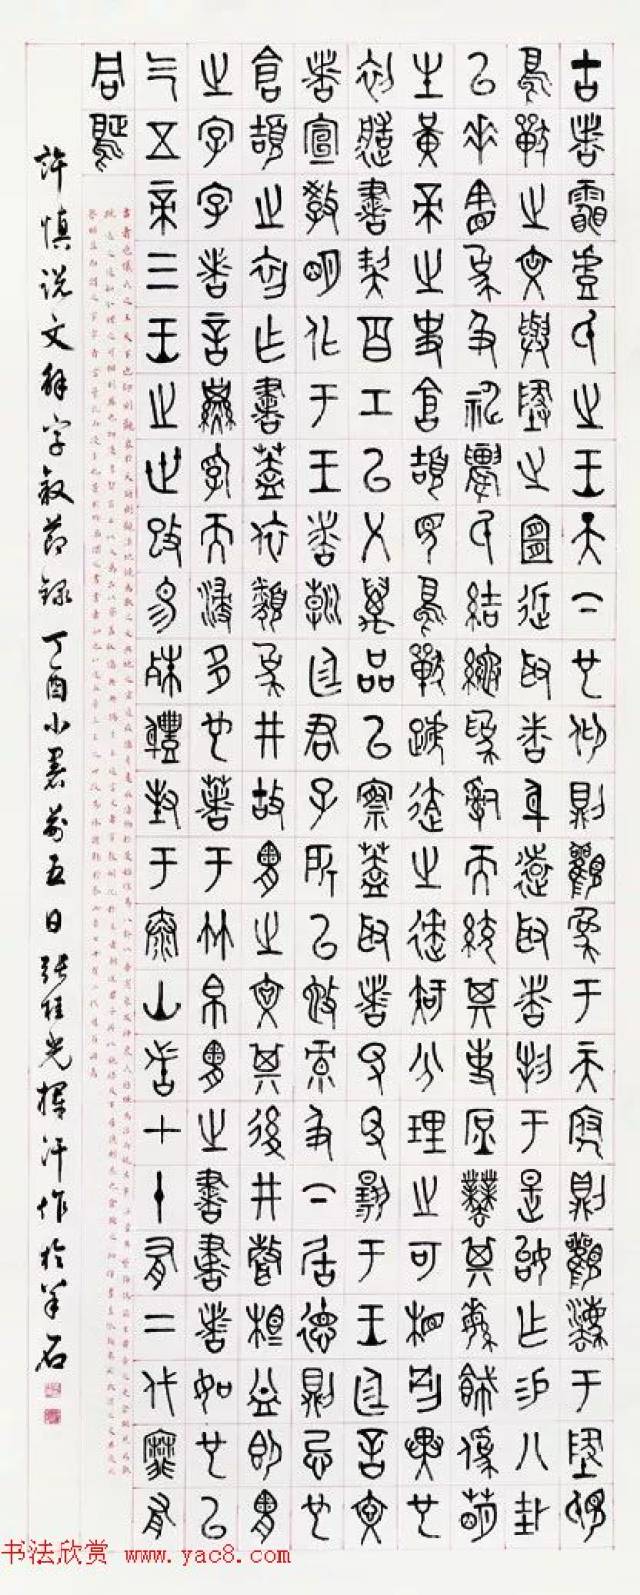 古者庖羲氏之王天下也仰則觀象于天俯則觀法于地視
鳥獸之文與地之宜近取諸身遠取諸物于是始作易八卦
以垂憲象及神農氏結繩爲治而統其事庶業其繁飾僞萌
生黃帝之史倉頡見鳥獸蹄迒之迹知分理之可相別異也
初造書契百工以乂萬品以察蓋取諸夬夬揚于王庭言文
者宣教明化于王者朝廷君子所以施祿及下居德則忌也
倉頡之初作書蓋依類象形故謂之文其後形聲相益即謂
之字字者言孳乳而浸多也著于竹帛謂之書書者如也以
迄五帝三王之世改易殊體封于泰山者七十有二代靡有
同焉
許慎说文解字敘節録丁酉小暑前五日張桂光揮汗作於羊石
书法欣赏 www.yac8.com